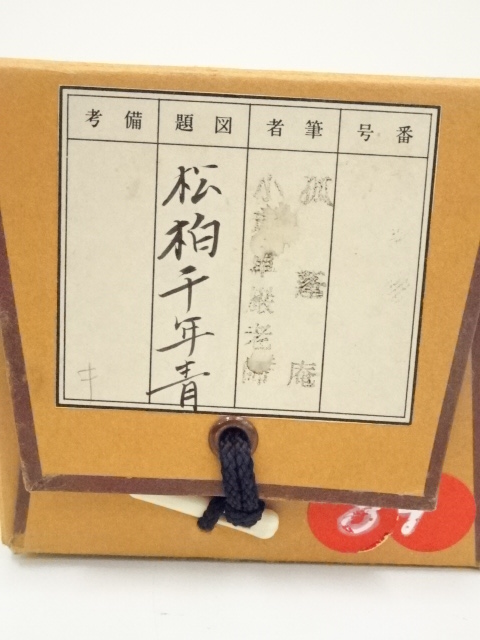 番号
筆者
図題
備考
孤篷庵
小
卓巖老師
松柏千年青
キ